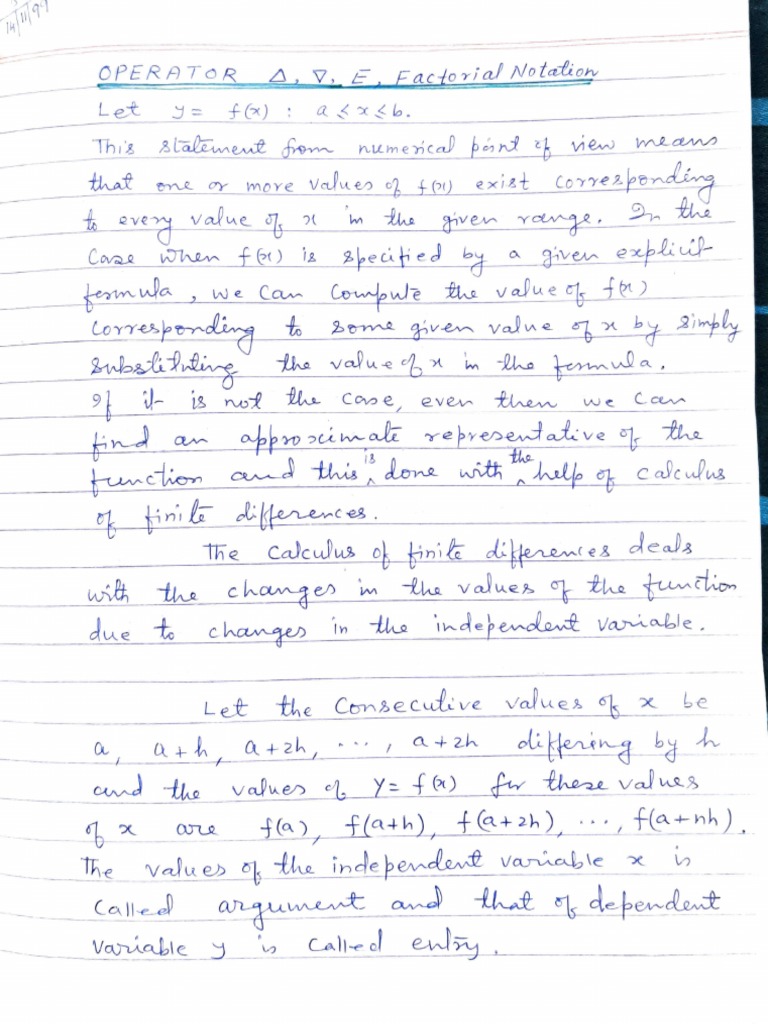 14/11/99
OPERATOR Δ, ∇, E, Factorial Notation
Let y = f(x) : a ≤ x ≤ b.
This statement from numerical point of view means
that one or more values of f(x) exist corresponding
to every value of x in the given range. In the
Case when f(x) is specified by a given explicit
formula, we can compute the value of f(x)
corresponding to some given value of x by simply
substituting the value of x in the formula.
If it is not the case, even then we can
find an approximate representative of the
function and this is done with the help of calculus
of finite differences.
The calculus of finite differences deals
with the changes in the values of the function
due to changes in the independent variable.
Let the consecutive values of x be
a, a+h, a+2h, ..., a+2h differing by h
and the values of y = f(x) for these values
of x are f(a), f(a+h), f(a+2h), ..., f(a+nh).
The values of the independent variable x is
called argument and that of dependent
variable y is called entry.